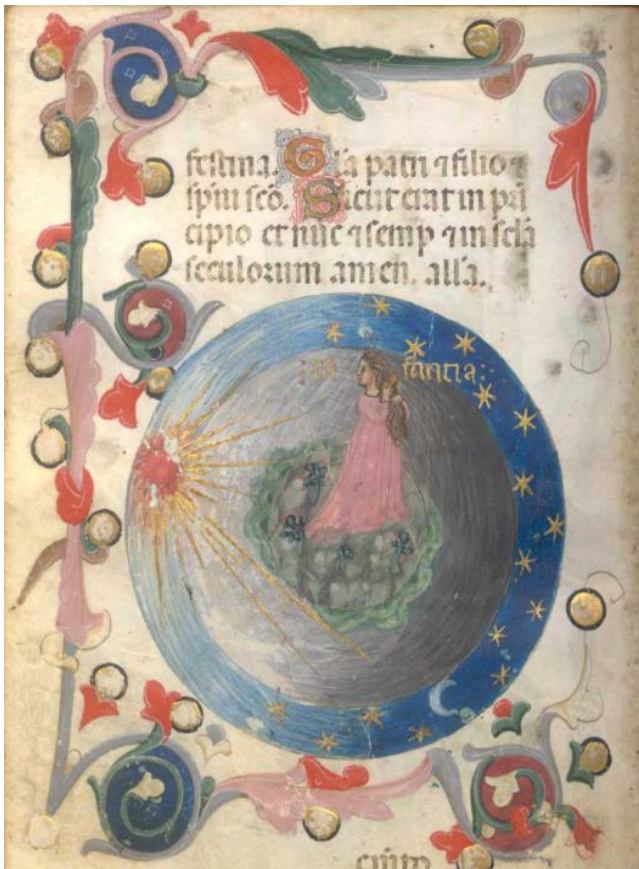 festina. Gl̄a patri ⁊ filio ⁊
spiui sc̄o. Sicut erat in pri
cipio et nūc ⁊ semp ⁊ in scl̄a
seculorum amen. all̄a.
: in fantia :